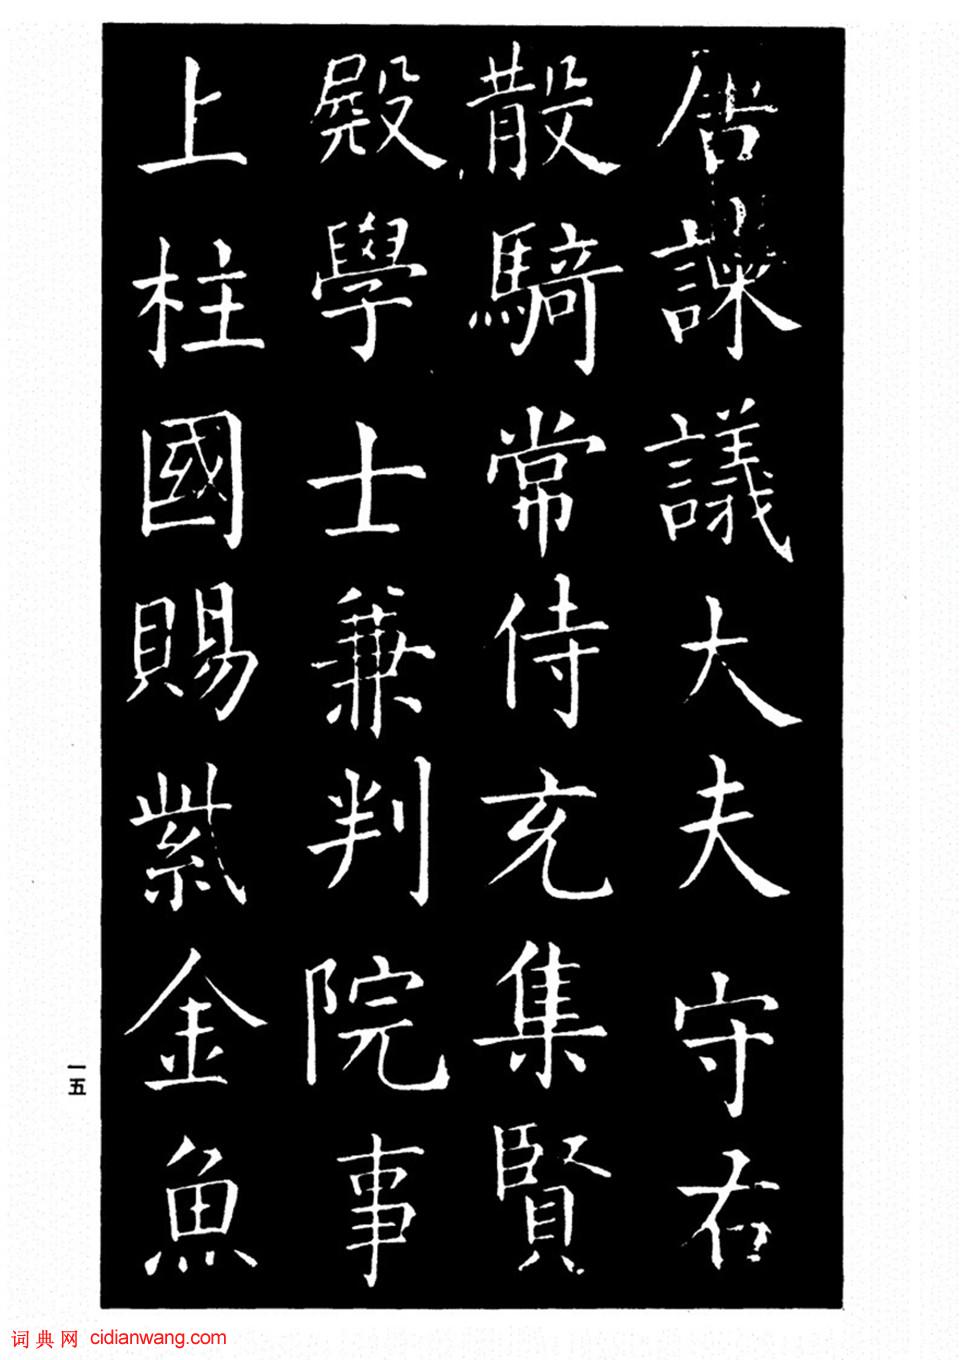 舍諫議大夫守右
散騎常侍充集賢
殿學士兼判院事
上柱國賜紫金魚
一五
词典网 cidianwang.com